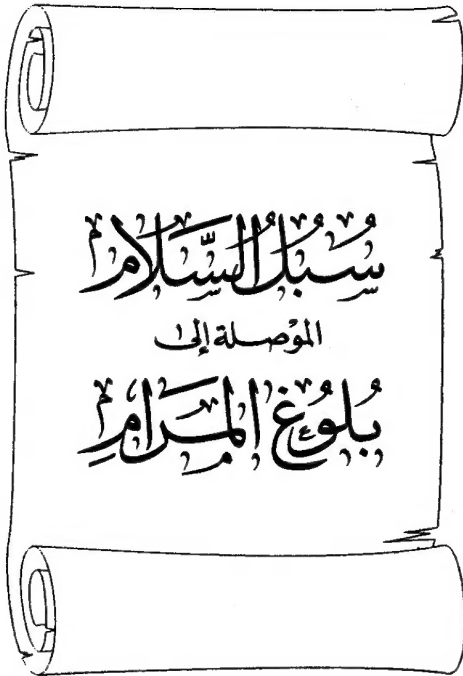 سُبُلُ السَّلَامِ
الموُصلة إلى
بُلُوغِ المَرَامِ